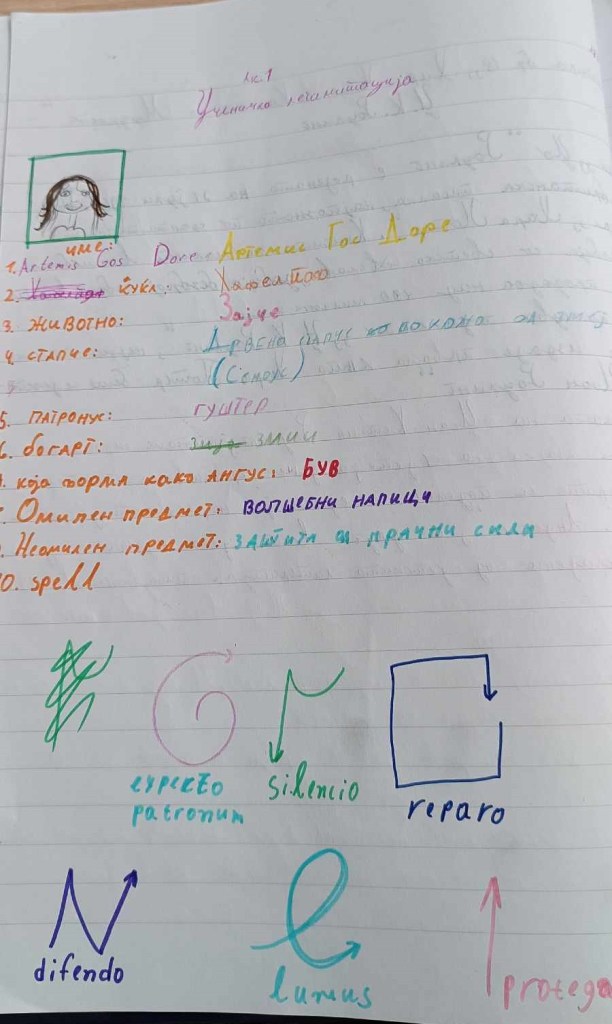 лк.1
Ученичка легитимација
1. име:
Artemis Gos Dore. Артемис Гос Доре
2. кукл. Хафелпаф
3. животно: Зајче
4. стапче: Дрвено стапче во кожа од змеј
(Сепоус)
5. патронус: гуштер
6. богарт: змии
која форма како ангус: БУВ
Омилен предмет: волшебни напици
Неомилен предмет: заштита од мрачни сили
10. spell
expekto
patronum
silencio
reparo
difendo
lumus
protega